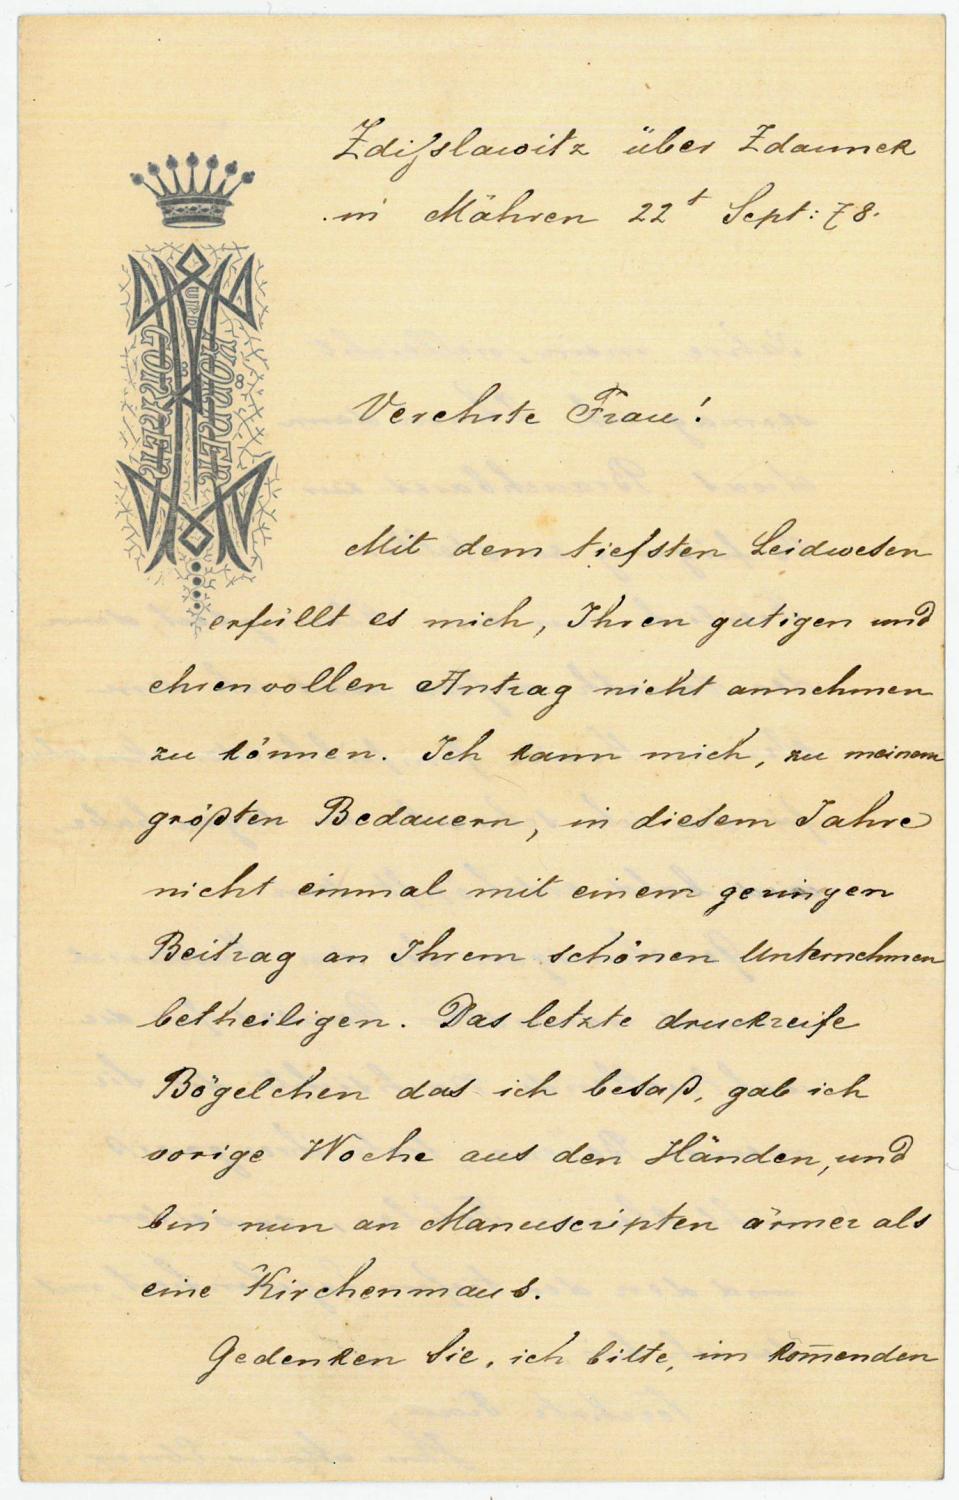 Zdißlawitz über Zdaunek
in Mähren 22t Sept: 78.
Verehrte Frau!
Mit dem tiefsten Leidwesen
erfüllt es mich, Ihren gutigen und
ehrenvollen Antrag nicht annehmen
zu können. Ich kann mich, zu meinem
größten Bedauern, in diesem Jahre
nicht einmal mit einem geringen
Beitrag an Ihrem schönen Unternehmen
betheiligen. Das letzte druckreife
Bögelchen das ich besaß, gab ich
vorige Woche aus den Händen, und
bin nun an Manuscripten ärmer als
eine Kirchenmaus.
Gedenken Sie, ich bitte, im kom̅enden